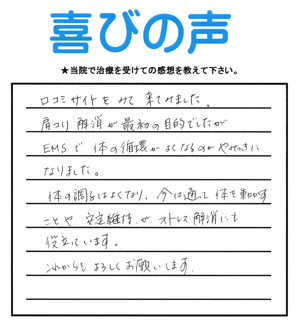 喜びの声
★当院で治療を受けての感想を教えて下さい。
口コミサイトをみて来てみました。
肩コリ解消が最初の目的でしたが
EMSで体の循環がよくなるのがやみつきに
なりました。
体の調子はよくなり、今は通って体を動かす
ことや安定維持がストレス解消にも
役立っています。
これからもよろしくお願いします。